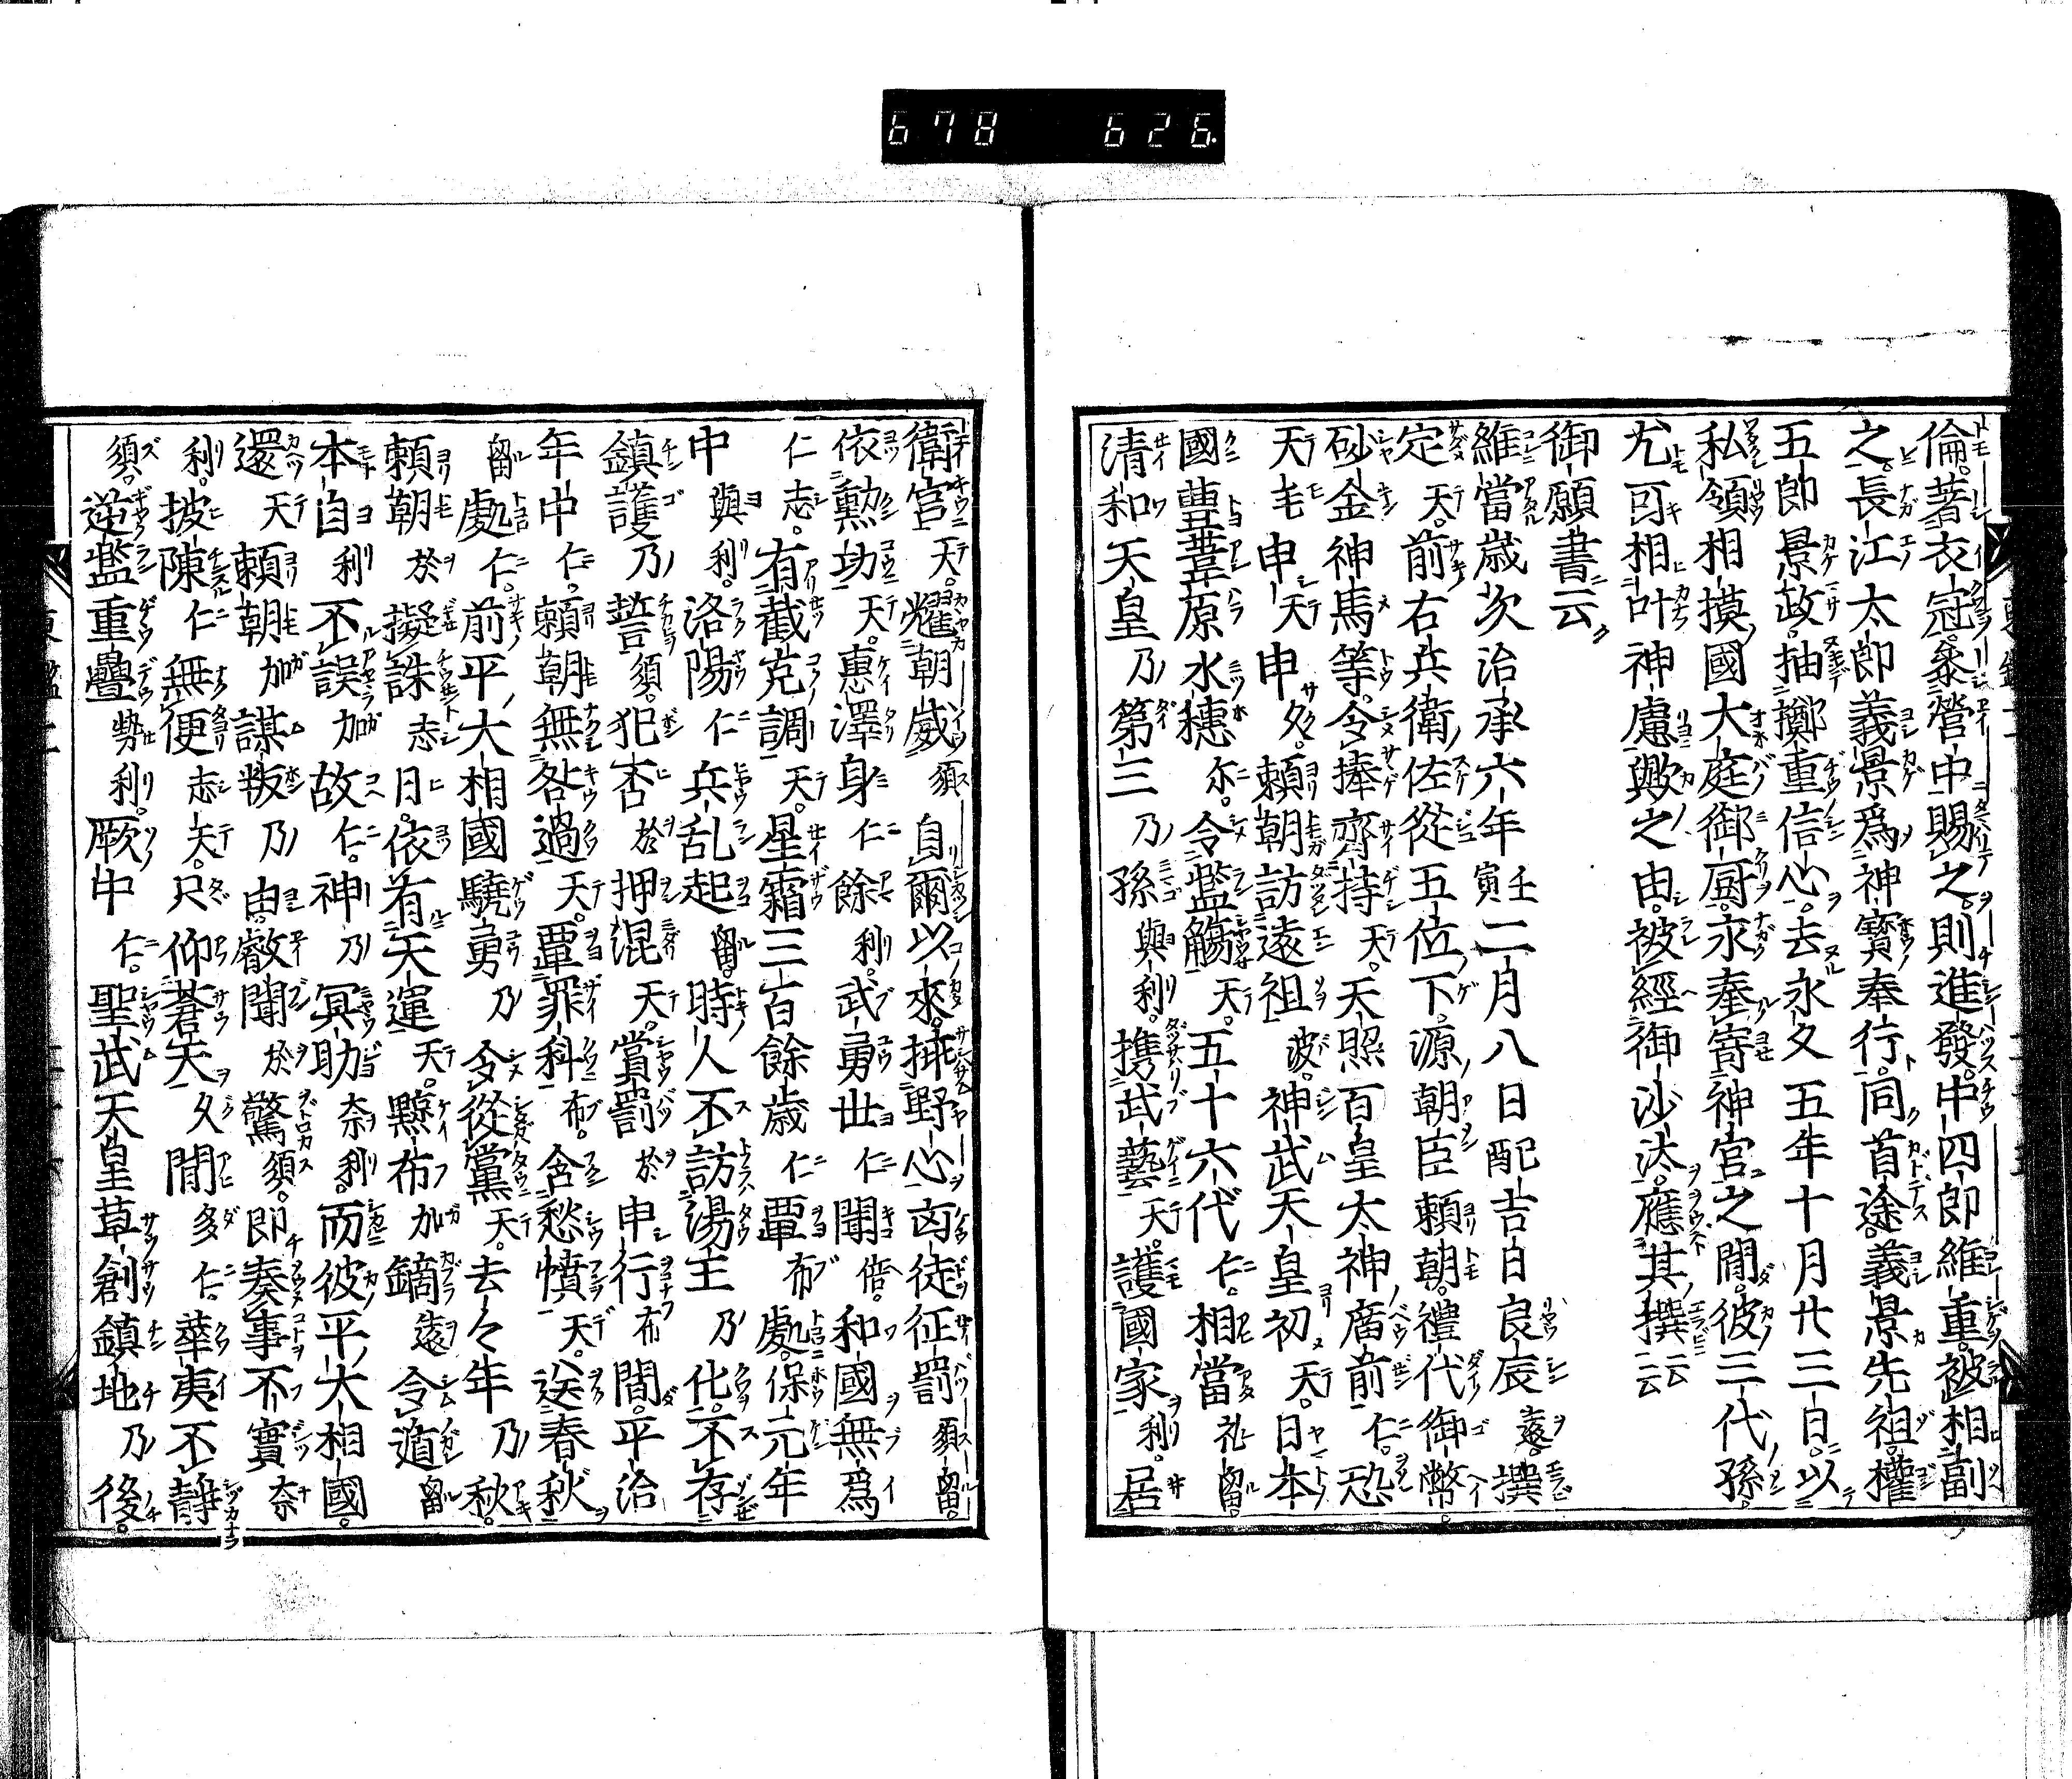 678 626
倫。著衣冠。參營中賜之。則進發。中四郎維重。被相副
之。長江太郎義景爲神寳奉行。同首途。義景先祖。權
五郎景政。抽擲重信心。去永久五年十月廿三日。以
私領相摸國大庭御厨。永奉寄神宮之間。彼三代孫。
尤可相叶神慮歟之由。被經御沙汰。應其撰云云
御願書云
維當歳次治承六年壬寅二月八日配吉日良辰遠。撰
定天。前右兵衛佐從五位下。源朝臣頼朝。禮代御幣。
砂金神馬等。令捧齊持天。天照百皇太神廣前仁。恐
天毛申天申久。頼朝訪遠祖波。神武天皇初天。日本
國豊葦原水穗尓。令濫觴天。五十六代仁。相當礼留。
清和天皇乃第三乃孫與利。携武藝天。護國家利。居
衛官天。耀朝威須自爾以來。挿野心凶徒征罰須留。
依勲功天。惠澤身仁餘利。武勇世仁聞倍。和國無爲
仁志。有截克調天。星霜三百餘歳仁覃布處。保元年
中與利。洛陽仁兵乱起留。時人不訪湯王乃化。不存
鎮護乃誓須。犯否於押混天。賞罰於申行布間。平治
年中仁。頼朝無咎過天。覃罪科布。含愁憤天。送春秋
留處仁。前平大相國驍勇乃令從黨天。去々年乃秋。
頼朝於擬誅志日。依有天運天。黥布加鏑遠令遁留
本自利不誤加故仁。神乃冥助奈利。而彼平大相國。
還天頼朝加謀叛乃由。敵聞於驚須。即奏事不實奈
利。披陳仁無便志天。只仰蒼天久間多仁。華夷不静
須。逆濫重疊勢利。厥中仁。聖武天皇草創鎮地乃後。